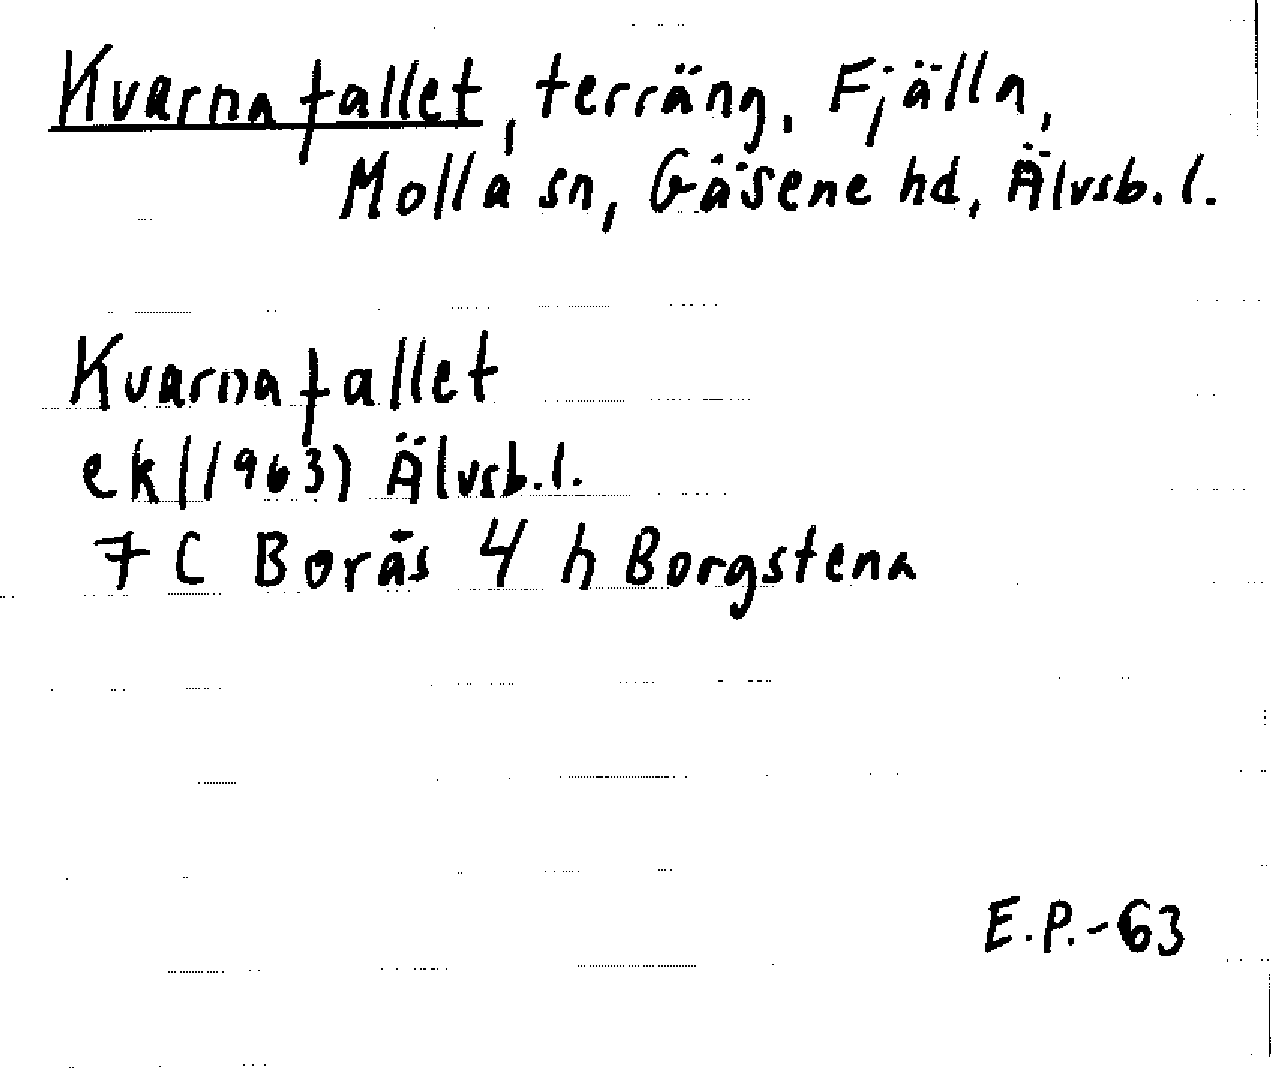 Kvarnafallet, terräng, Fjälla,
Molla sn, Gäsene hd, Älvsb. l.
Kvarnafallet
ek (1963) Älvsb. l.
7 C Borås 4 h Borgstena
E.P.-63